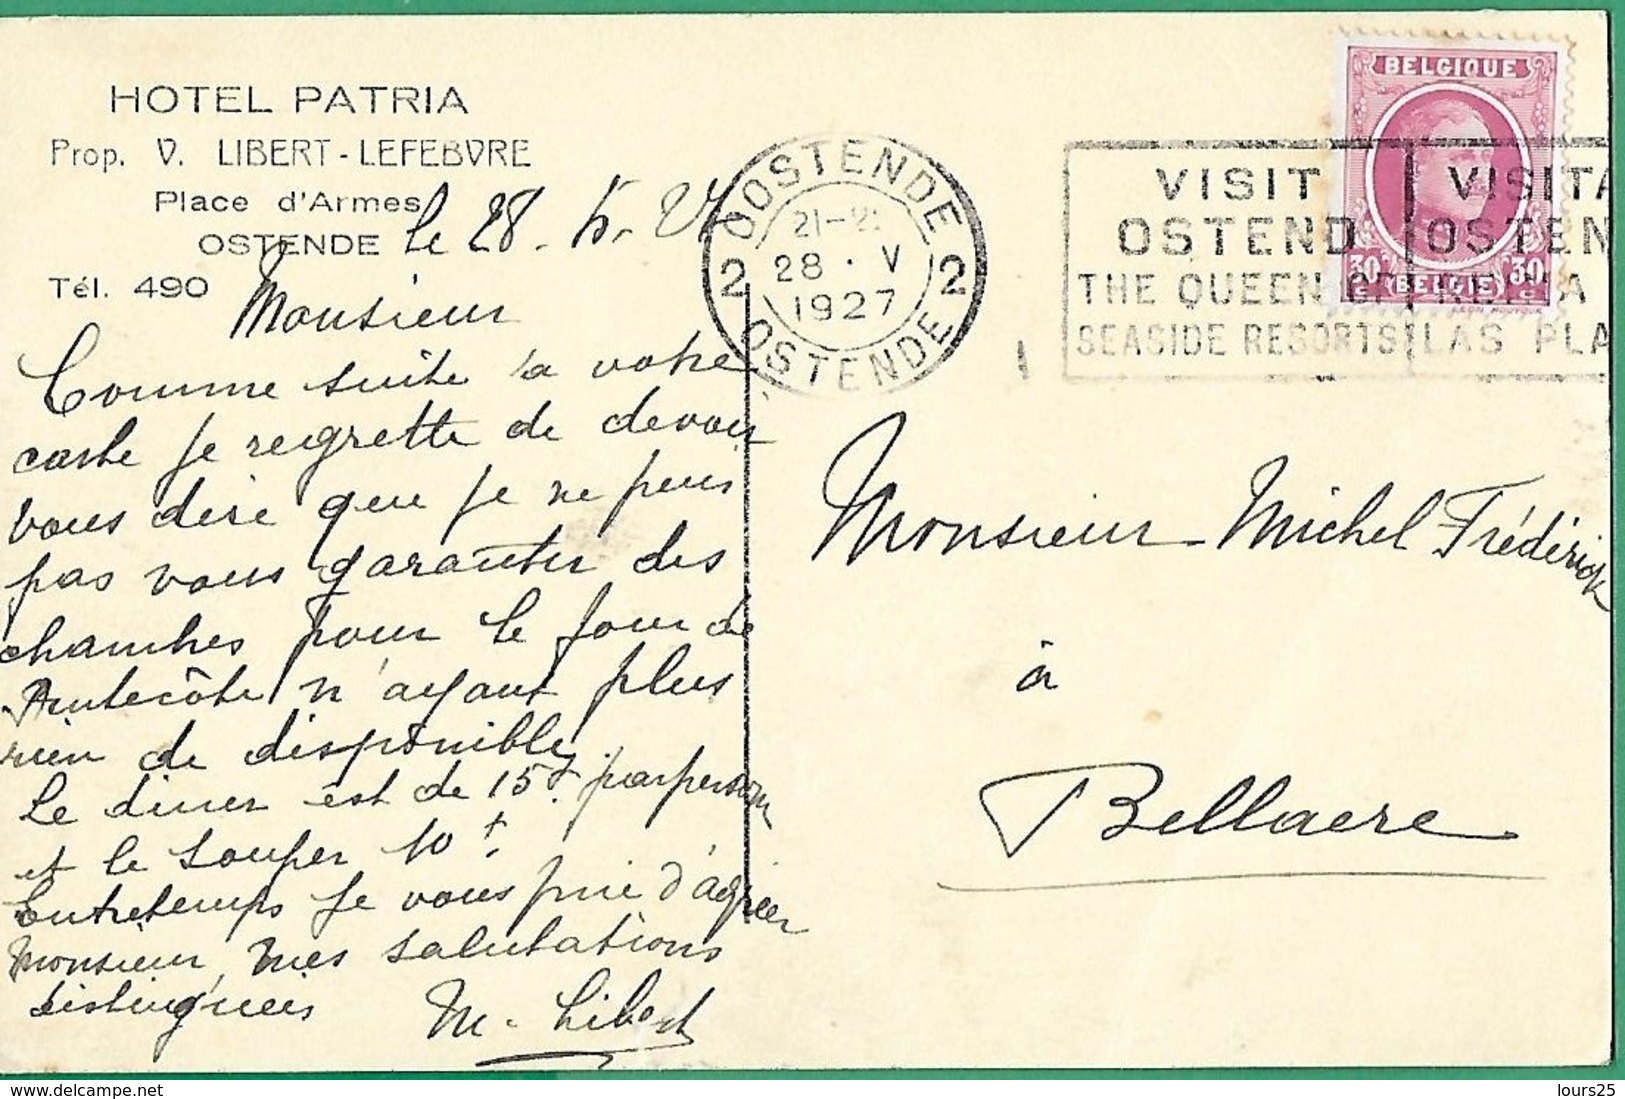 HOTEL PATRIA
Prop. V. LIBERT-LEFEBVRE
Place d'Armes
OSTENDE
Tél. 490
le 28. 5. 27
Monsieur
Comme suite a votre
carte je regrette de devoir
vous dire que je ne puis
pas vous garantir des
chambres pour le jour de
Pentecôte n'ayant plus
rien de disponible,
Le diner est de 15 f. par personne
et le souper 10 f.
Entretemps je vous prie d'agréer
Monsieur, mes salutations
distinguées
M. Libert
OOSTENDE
21-2
2 28 · V 2
1927
OSTENDE
VISIT
OSTEND
THE QUEEN OF
SEASIDE RESORTS
VISITA
OSTEN
REINA
LAS PLA
BELGIQUE
30 c BELGIË 30 c
Monsieur Michel Frédérick
à
Bellaere
delcampe.net
lours25